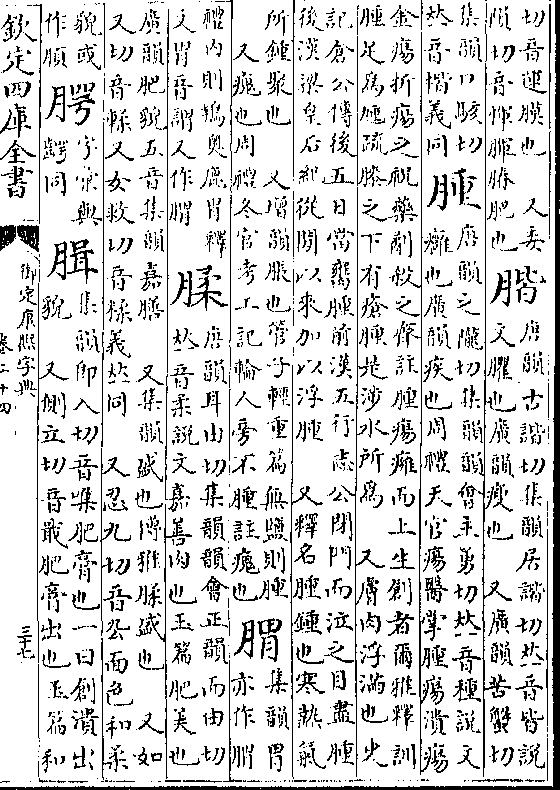 切音運膜也　又委
隕切音惲腪脪肥也
腊唐韻古諧切集韻居諧切𠀤音皆說
文臞也廣韻瘦也　又廣韻苦蟹切
集韻口駭切
𠀤音楷義同
腫唐韻之隴切集韻韻會主勇切𠀤音種說文
癰也廣韻疾也周禮天官瘍醫掌腫瘍潰瘍
金瘍折瘍之祝藥劀殺之齊註腫瘍癰而上生創者爾雅釋訓
腫足爲尰疏膝之下有瘡腫是涉水所爲　又膚肉浮滿也史
記倉公傳後五日當䐔腫前漢五行志公閉門而泣之目盡腫
後漢梁皇后紀從閒以來加以浮腫　又釋名腫鍾也寒熱氣
所鍾聚也　又增韻脹也管子輕重篇無鹽則腫
又瘣也周禮冬官考工記輪人旁不腫註瘣也
腪集韻胃
亦作腪
禮內則鴇奥鹿胃釋
文胃音謂又作腪
腬唐韻耳由切集韻韻會正韻而由切
𠀤音柔說文嘉善肉也玉篇肥美也
廣韻肥貌五音集韻嘉膳　又集韻盛也博雅腬盛也　又如
又切音輮又女救切音糅義𠀤同　又忍九切音厹面色和柔
貌或
作䐓
腭字彙與
齶同
腢集韻卽入切音㗱肥膏也一曰創潰出
貌　又側立切音戢肥膏出也玉篇和
欽定四庫全書
御定康熙字典
卷二十四
三十七